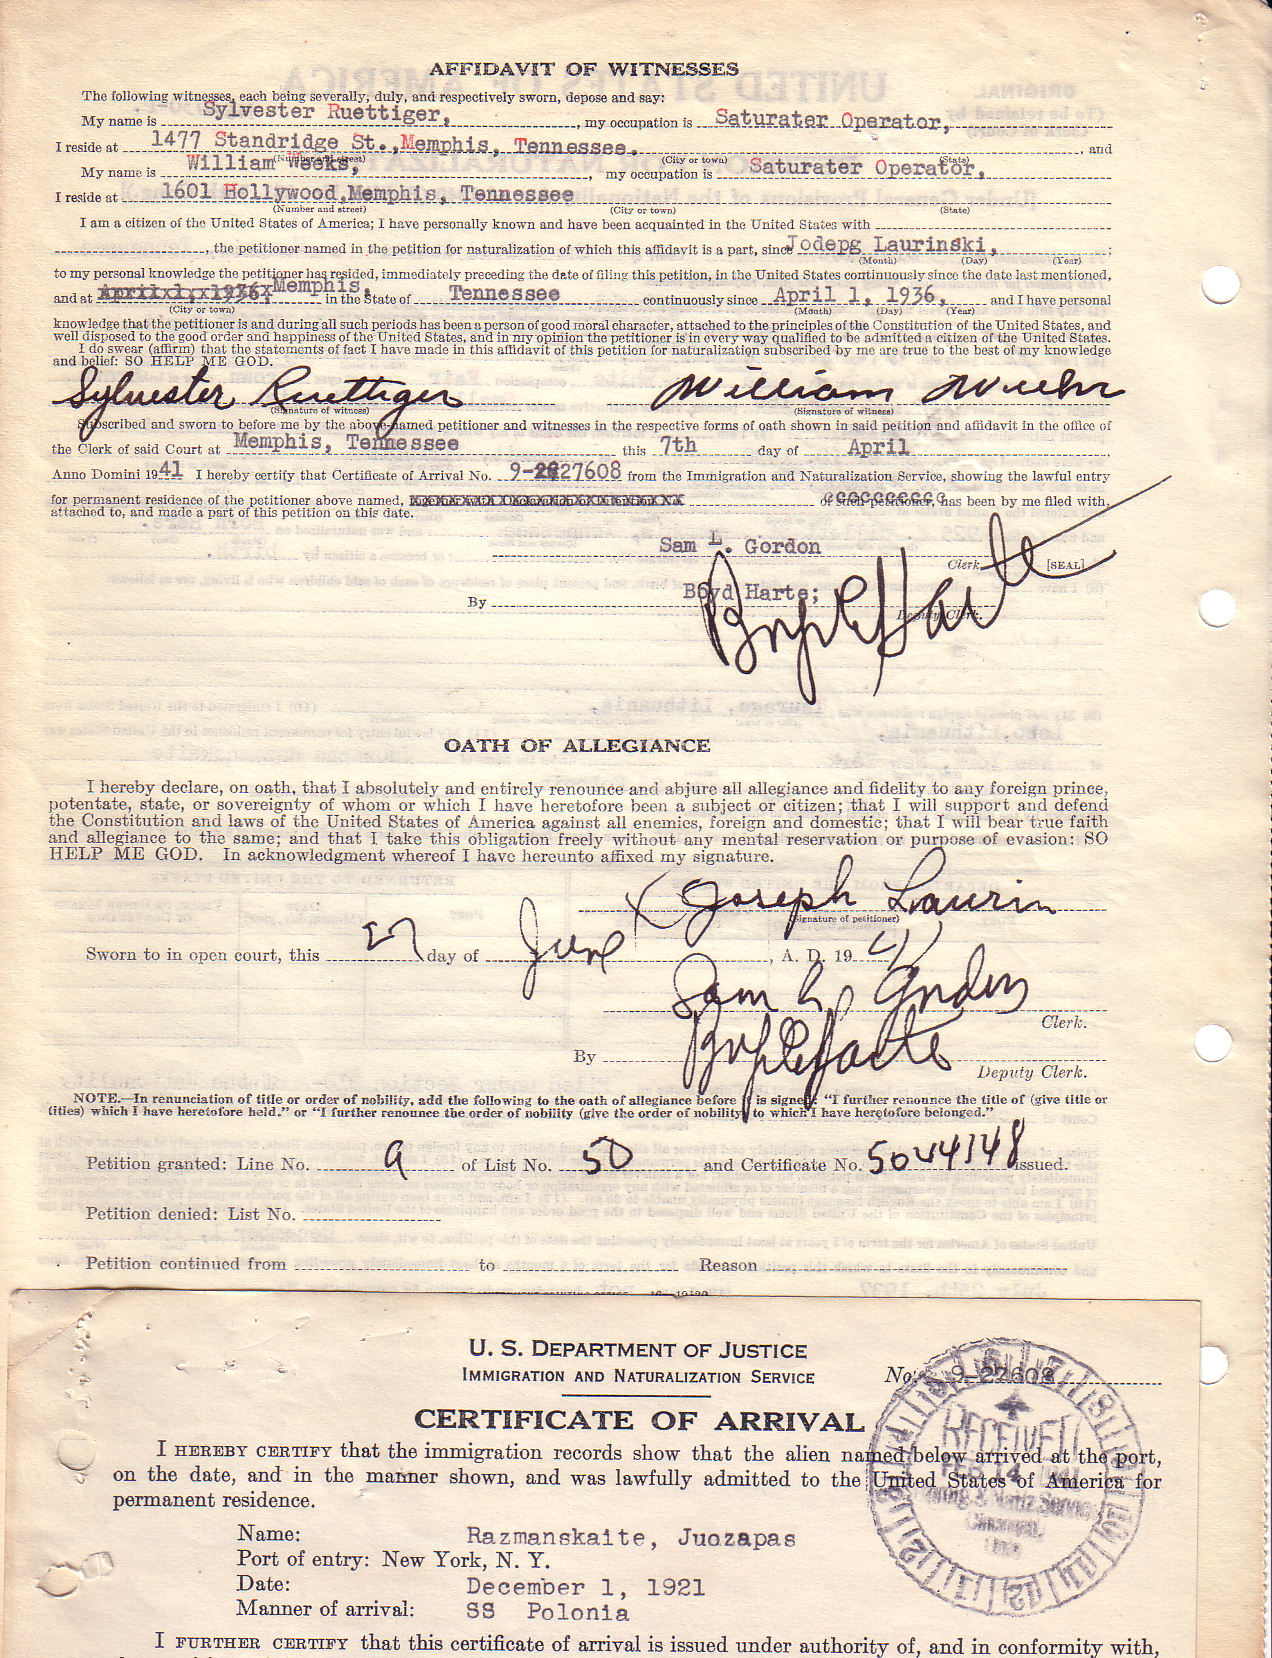 AFFIDAVIT OF WITNESSES
The following witnesses, each being severally, duly, and respectively sworn, depose and say:
My name is Sylvester Ruettiger, , my occupation is Saturater Operator,
I reside at 1477 Standridge St., Memphis, Tennessee. , and
(Number and street) (City or town) (State)
My name is William Weeks, , my occupation is Saturater Operator,
I reside at 1601 Hollywood, Memphis, Tennessee
(Number and street) (City or town) (State)
I am a citizen of the United States of America; I have personally known and have been acquainted in the United States with
, the petitioner named in the petition for naturalization of which this affidavit is a part, since Jodepg Laurinski, ;
(Month) (Day) (Year)
to my personal knowledge the petitioner has resided, immediately preceding the date of filing this petition, in the United States continuously since the date last mentioned,
and at April 1, 1936, Memphis, in the State of Tennessee continuously since April 1, 1936, and I have personal
(City or town) (Month) (Day) (Year)
knowledge that the petitioner is and during all such periods has been a person of good moral character, attached to the principles of the Constitution of the United States, and
well disposed to the good order and happiness of the United States, and in my opinion the petitioner is in every way qualified to be admitted a citizen of the United States.
I do swear (affirm) that the statements of fact I have made in this affidavit of this petition for naturalization subscribed by me are true to the best of my knowledge
and belief: SO HELP ME GOD.
Sylvester Ruettiger William
(Signature of witness) (Signature of witness)
Subscribed and sworn to before me by the above-named petitioner and witnesses in the respective forms of oath shown in said petition and affidavit in the office of
the Clerk of said Court at Memphis, Tennessee this 7th day of April
Anno Domini 1941 I hereby certify that Certificate of Arrival No. 9-27608 from the Immigration and Naturalization Service, showing the lawful entry
for permanent residence of the petitioner above named, together with Declaration of Intention No. of such petitioner, has been by me filed with,
attached to, and made a part of this petition on this date.
Sam L. Gordon
Clerk. [SEAL]
By Boyd Harte;
Deputy Clerk.
OATH OF ALLEGIANCE
I hereby declare, on oath, that I absolutely and entirely renounce and abjure all allegiance and fidelity to any foreign prince,
potentate, state, or sovereignty of whom or which I have heretofore been a subject or citizen; that I will support and defend
the Constitution and laws of the United States of America against all enemies, foreign and domestic; that I will bear true faith
and allegiance to the same; and that I take this obligation freely without any mental reservation or purpose of evasion: SO
HELP ME GOD. In acknowledgment whereof I have hereunto affixed my signature.
X Joseph Laurin
(Signature of petitioner)
Sworn to in open court, this 27 day of June , A. D. 1941
Sam L.
Clerk.
By
Deputy Clerk.
NOTE.—In renunciation of title or order of nobility, add the following to the oath of allegiance before it is signed: "I further renounce the title of (give title or
titles) which I have heretofore held." or "I further renounce the order of nobility (give the order of nobility) to which I have heretofore belonged."
Petition granted: Line No. 9 of List No. 50 and Certificate No. 5044148 issued.
Petition denied: List No.
Petition continued from to Reason
U. S. DEPARTMENT OF JUSTICE
IMMIGRATION AND NATURALIZATION SERVICE No. 9-27608
CERTIFICATE OF ARRIVAL
RECEIVED
FEB 14 1941
I HEREBY CERTIFY that the immigration records show that the alien named below arrived at the port,
on the date, and in the manner shown, and was lawfully admitted to the United States of America for
permanent residence.
Name: Razmanskaite, Juozapas
Port of entry: New York, N. Y.
Date: December 1, 1921
Manner of arrival: SS Polonia
I FURTHER CERTIFY that this certificate of arrival is issued under authority of, and in conformity with,